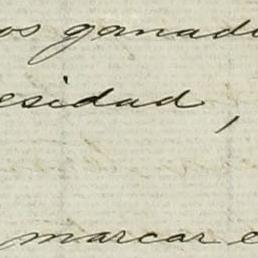 os ganado
esidad,
marcar e